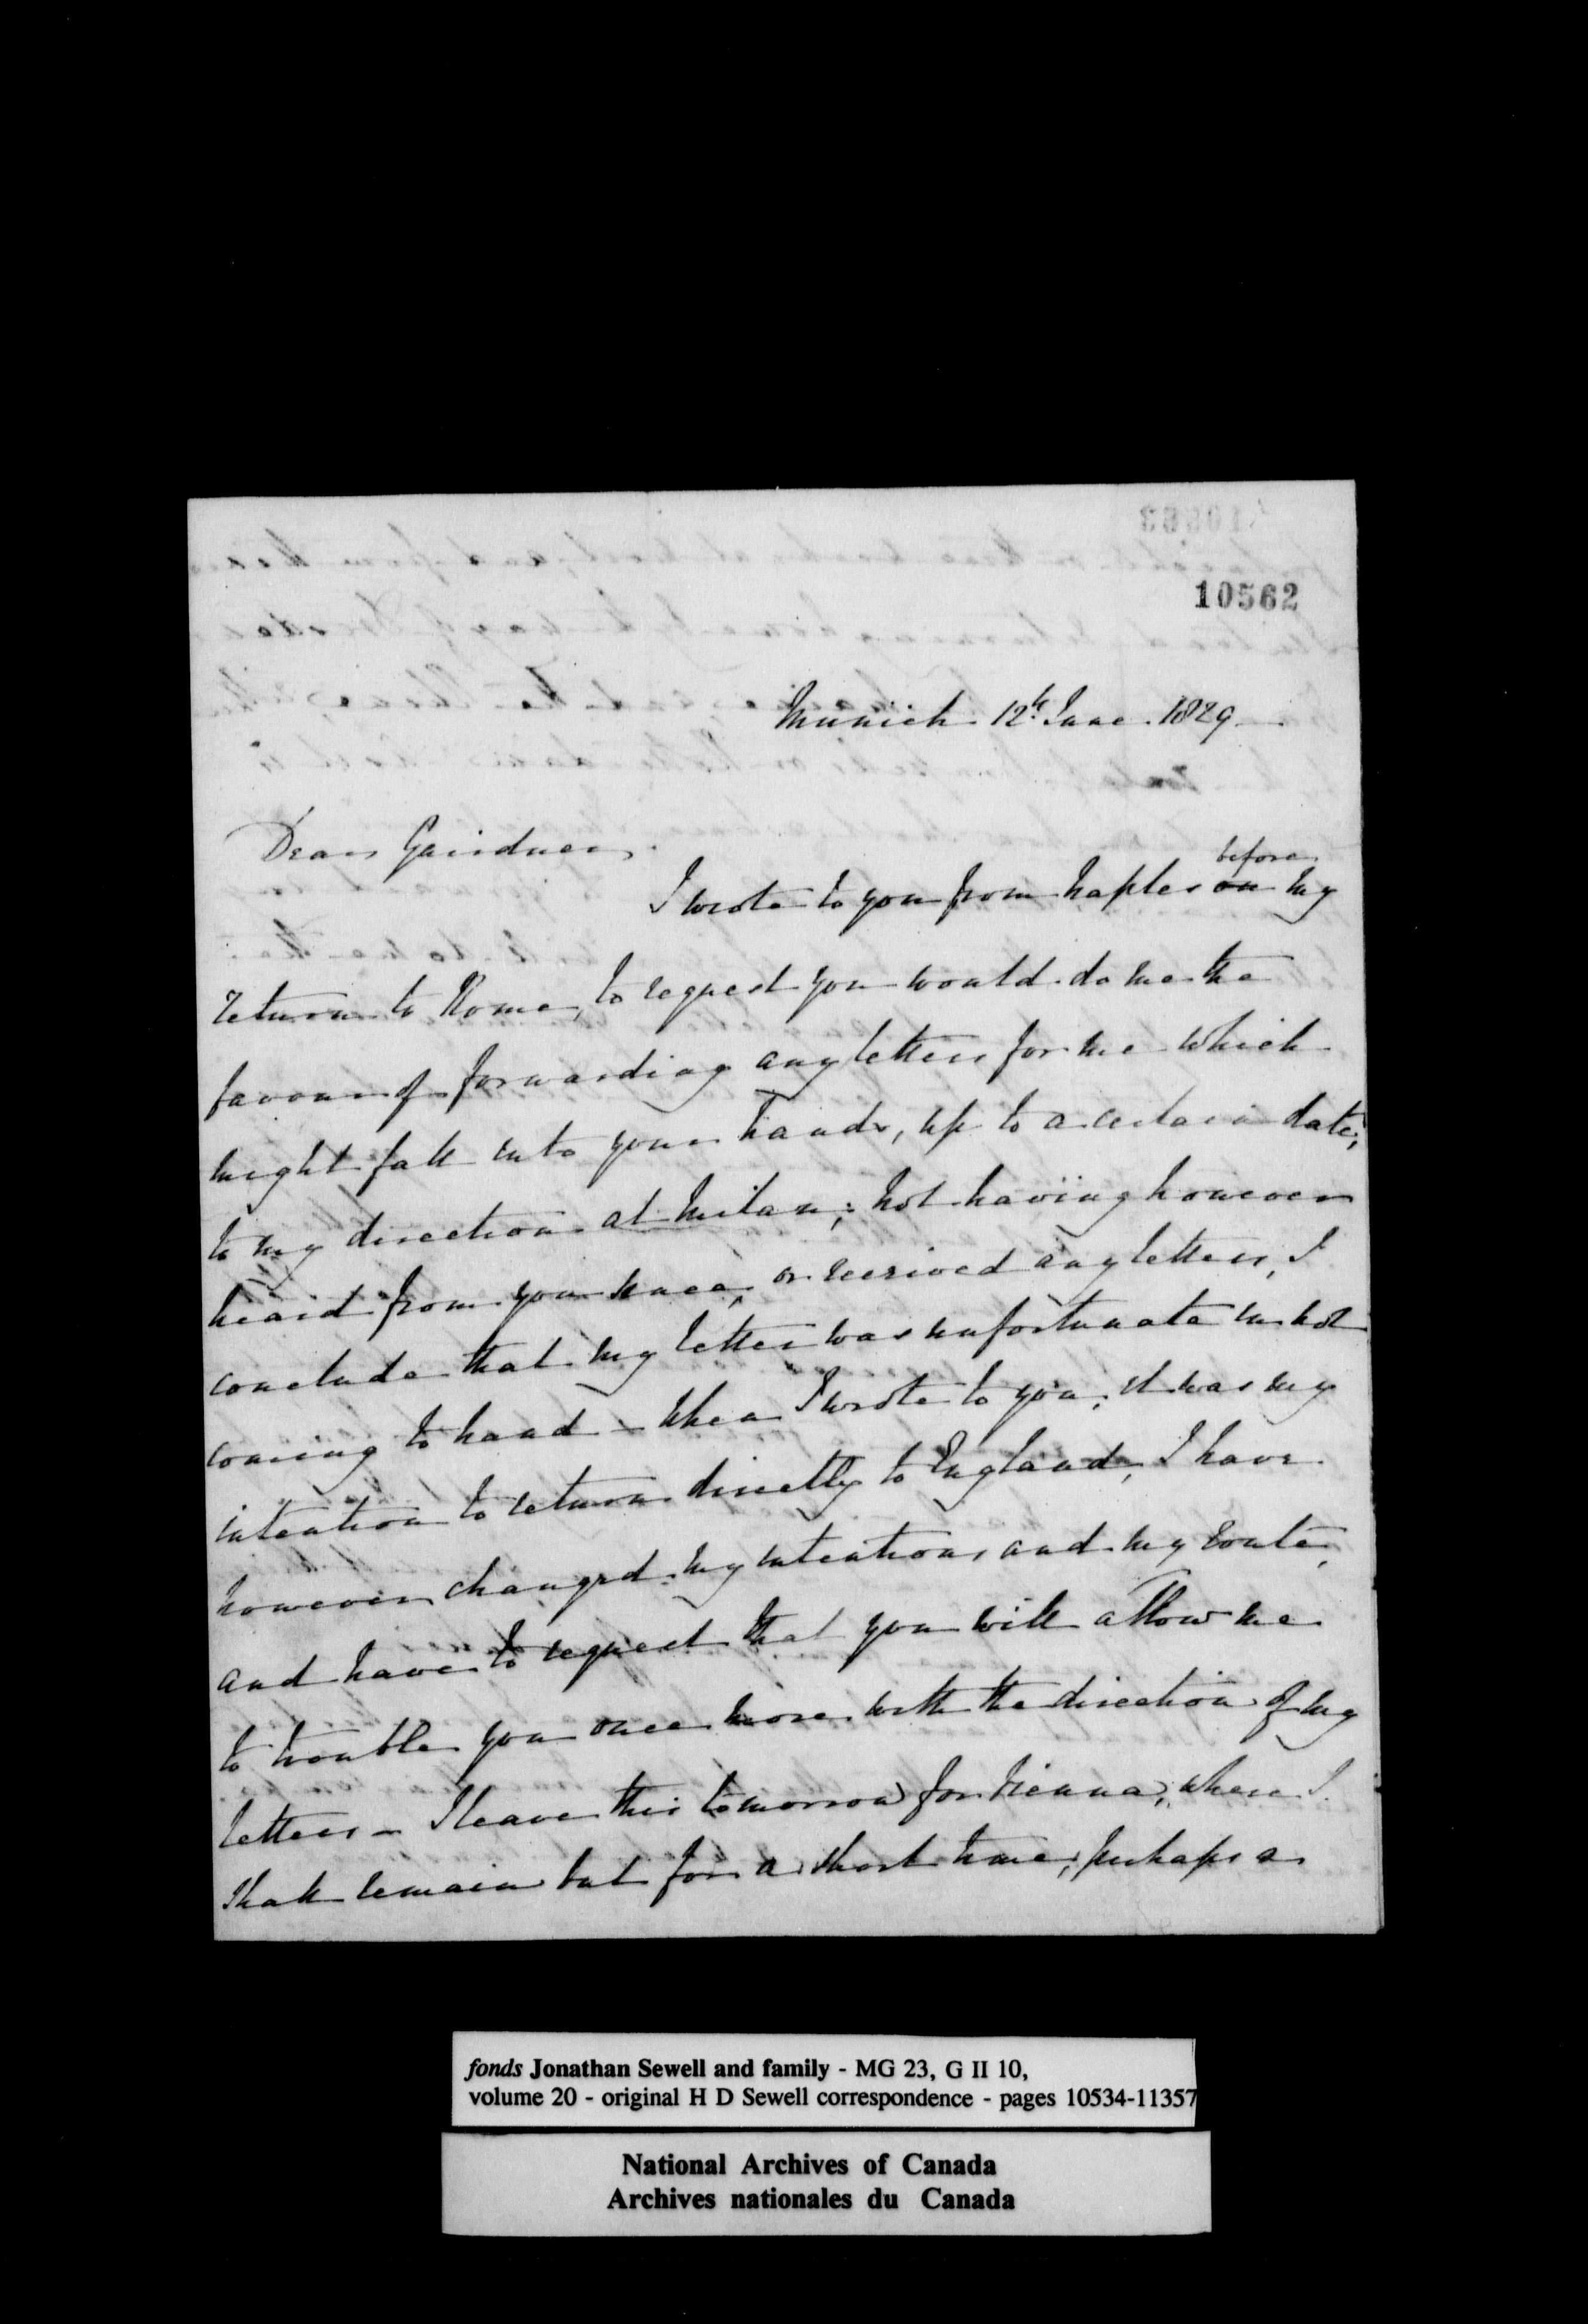 10562
Munich 12th June 1829
Dear Gairdner,
before
I wrote to you from Naples on my
return to Rome, to request you would do me the
favour of forwarding any letters for me which
might fall into your hands, up to a certain date,
to my direction at Milan; not having however
heard from you since, or received any letters, I
conclude that my letter was unfortunate in not
coming to hand - When I wrote to you, it was my
intention to return directly to England, I have
however changed my intentions and my route,
and have to request that you will allow me
to trouble you once more with the direction of my
letters - I leave this tomorrow for Vienna, where I
shall remain but for a short time, perhaps a
fonds Jonathan Sewell and family - MG 23, G II 10,
volume 20 - original H D Sewell correspondence - pages 10534-11357
National Archives of Canada
Archives nationales du Canada